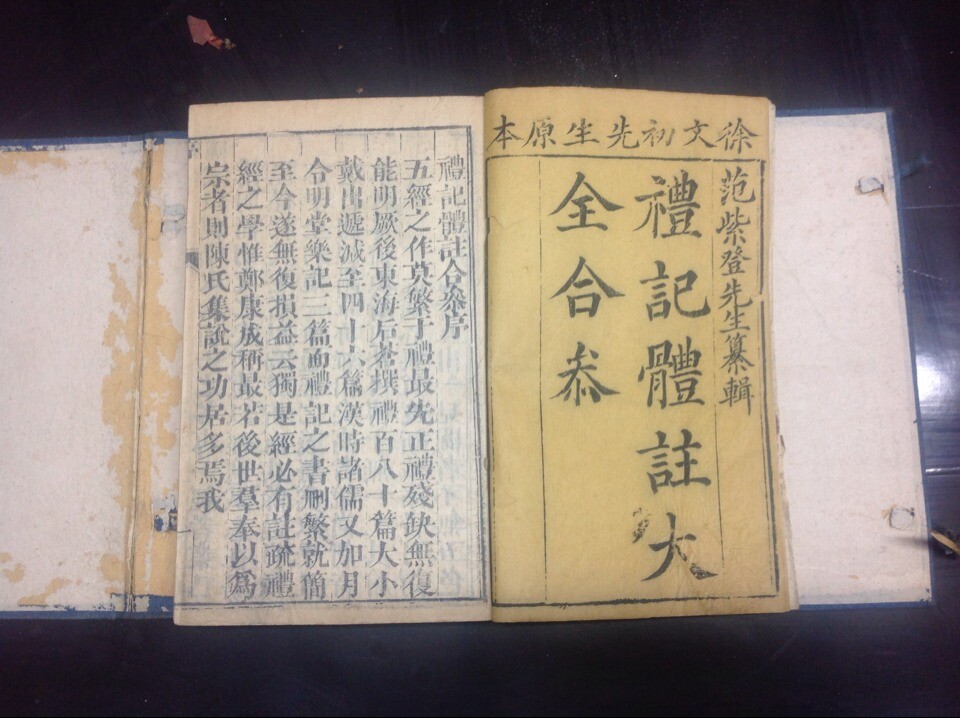 徐文初先生原本
范紫登先生纂輯
禮記體註大
全合叅
禮記體註合叅序
五經之作莫繁于禮最先正禮殘缺無復
能明厥後東海后蒼撰禮百八十篇大小
戴出遞減至四十六篇漢時諸儒又加月
令明堂樂記三篇而禮記之書刪繁就簡
至今遂無復損益云獨是經必有註疏禮
經之學惟鄭康成稱最若後世羣奉以爲
宗者則陳氏集說之功居多焉我